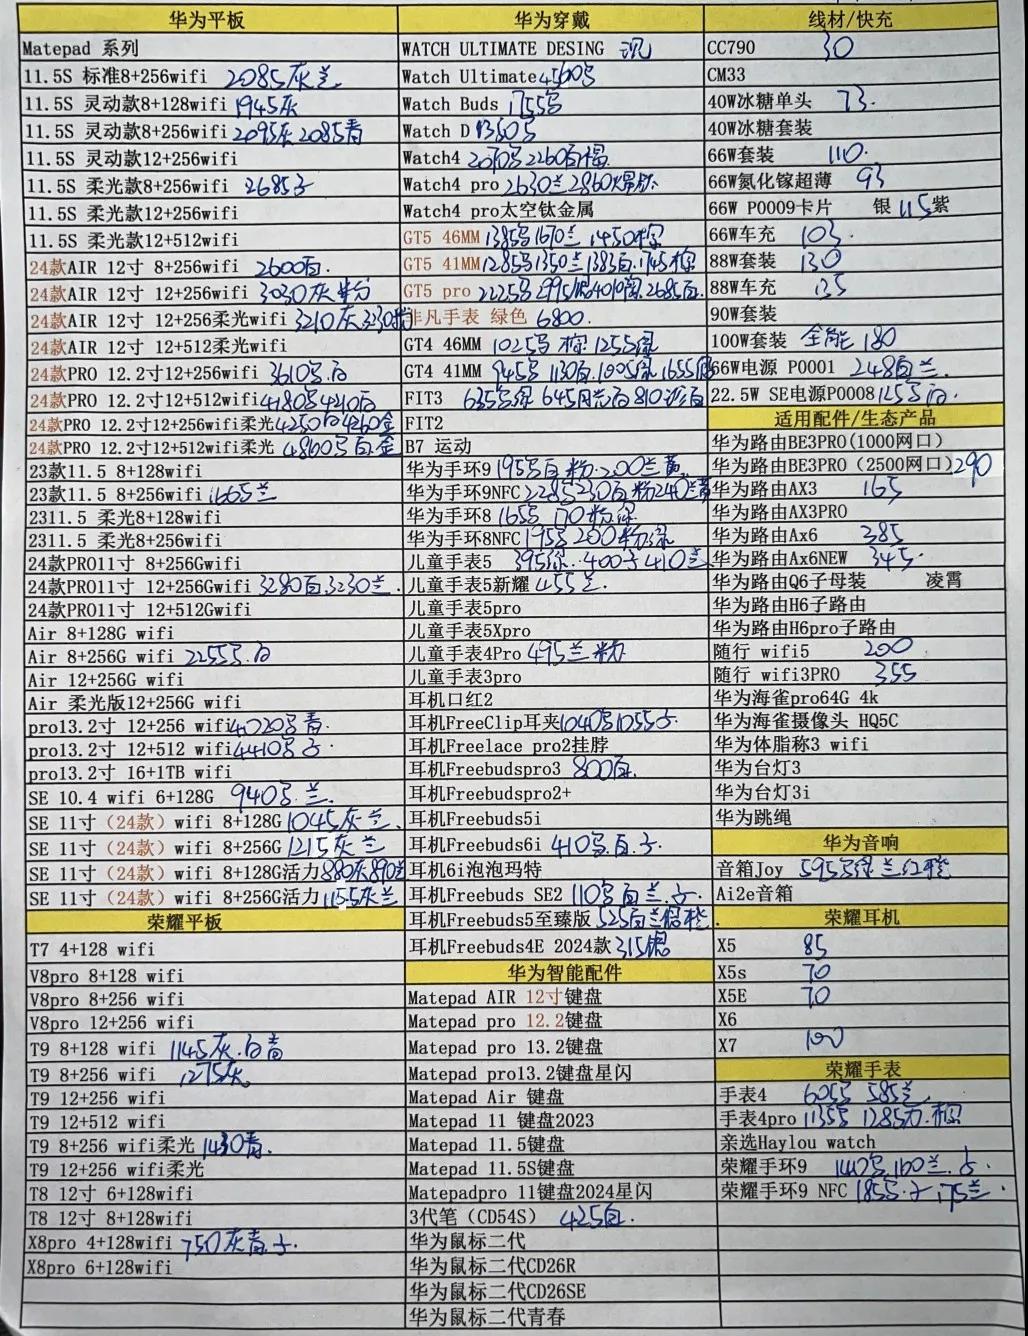 华为平板
Matepad 系列
11.5S 标准8+256wifi 2085灰兰
11.5S 灵动款8+128wifi 1945灰
11.5S 灵动款8+256wifi 2095灰 2085青
11.5S 灵动款12+256wifi
11.5S 柔光款8+256wifi 2685子
11.5S 柔光款12+256wifi
11.5S 柔光款12+512wifi
24款AIR 12寸 8+256wifi 2600白.
24款AIR 12寸 12+256wifi 3030灰 粉
24款AIR 12寸 12+256柔光wifi 3210灰3230粉
24款AIR 12寸 12+512柔光wifi
24款PRO 12.2寸12+256wifi 3610号.白
24款PRO 12.2寸12+512wifi 4180号4210白
24款PRO 12.2寸12+256wifi柔光 4250白4260金
24款PRO 12.2寸12+512wifi柔光 4860号白.金
23款11.5 8+128wifi
23款11.5 8+256wifi 1665兰
2311.5 柔光8+128wifi
2311.5 柔光8+256wifi
24款PRO11寸 8+256Gwifi
24款PRO11寸 12+256Gwifi 3280白.3230兰.
24款PRO11寸 12+512Gwifi
Air 8+128G wifi
Air 8+256G wifi 2255号.白
Air 12+256G wifi
Air 柔光版12+256G wifi
pro13.2寸 12+256 wifi 4020号青.
pro13.2寸 12+512 wifi 4410号子.
pro13.2寸 16+1TB wifi
SE 10.4 wifi 6+128G 940号.兰.
SE 11寸（24款）wifi 8+128G 1045灰兰.
SE 11寸（24款）wifi 8+256G 1215灰兰
SE 11寸（24款）wifi 8+128G活力 880灰890兰
SE 11寸（24款）wifi 8+256G活力 1155灰兰
荣耀平板
T7 4+128 wifi
V8pro 8+128 wifi
V8pro 8+256 wifi
V8pro 12+256 wifi
T9 8+128 wifi 1145灰.白青
T9 8+256 wifi 1275灰
T9 12+256 wifi
T9 12+512 wifi
T9 8+256 wifi柔光 1430青.
T9 12+256 wifi柔光
T8 12寸 6+128wifi
T8 12寸 8+128wifi
X8pro 4+128wifi 750灰青子.
X8pro 6+128wifi
华为穿戴
WATCH ULTIMATE DESING 沉
Watch Ultimate 4560号
Watch Buds 1755号
Watch D 1350号
Watch4 2070号2260白
Watch4 pro 2630兰2860
Watch4 pro太空钛金属
GT5 46MM 1385号1670兰 1450棕
GT5 41MM 1285号1350兰1385白.1745
GT5 pro 2225号 2685白.
非凡手表 绿色 6800.
GT4 46MM 1025号 棕1255绿
GT4 41MM 945号 1130白.1005绿 1655
FIT3 635号绿 645月光白 810
FIT2
B7 运动
华为手环9 195号白粉.200兰黄
华为手环9NFC 228号230白粉240兰黄
华为手环8 165号 170粉绿
华为手环8NFC 195号200粉绿
儿童手表5 395绿.400子410兰
儿童手表5新耀 455兰.
儿童手表5pro
儿童手表5Xpro
儿童手表4Pro 495兰 粉
儿童手表3pro
耳机口红2
耳机FreeClip耳夹 1040号1055子.
耳机Freelace pro2挂脖
耳机Freebudspro3 800白.
耳机Freebudspro2+
耳机Freebuds5i
耳机Freebuds6i 410号.白.子.
耳机6i泡泡玛特
耳机Freebuds SE2 110号白兰.子
耳机Freebuds5至臻版 525白兰银橙.
耳机Freebuds4E 2024款 315银
华为智能配件
Matepad AIR 12寸键盘
Matepad pro 12.2键盘
Matepad pro 13.2键盘
Matepad pro13.2键盘星闪
Matepad Air 键盘
Matepad 11 键盘2023
Matepad 11.5键盘
Matepad 11.5S键盘
Matepadpro 11键盘2024星闪
3代笔（CD54S） 425白.
华为鼠标二代
华为鼠标二代CD26R
华为鼠标二代CD26SE
华为鼠标二代青春
线材/快充
CC790 30
CM33
40W冰糖单头 73.
40W冰糖套装
66W套装 110.
66W氮化镓超薄 93
66W P0009卡片 银 115紫
66W车充 103.
88W套装 130
88W车充 135
90W套装
100W套装 全能 180
66W电源 P0001 248白兰.
22.5W SE电源P0008 125号白.
适用配件/生态产品
华为路由BE3PRO(1000网口)
华为路由BE3PRO（2500网口）290
华为路由AX3 165
华为路由AX3PRO
华为路由Ax6 385
华为路由Ax6NEW 345.
华为路由Q6子母装 凌霄
华为路由H6子路由
华为路由H6pro子路由
随行 wifi5 200
随行 wifi3PRO 355
华为海雀pro64G 4k
华为海雀摄像头 HQ5C
华为体脂称3 wifi
华为台灯3
华为台灯3i
华为跳绳
华为音响
音箱Joy 595号绿兰红橙
Ai2e音箱
荣耀耳机
X5 85
X5s 70
X5E 70
X6
X7 100
荣耀手表
手表4 605号 585兰
手表4pro 1135号 1285 棕
亲选Haylou watch
荣耀手环9 140号160兰.子.
荣耀手环9 NFC 185号.子175兰.